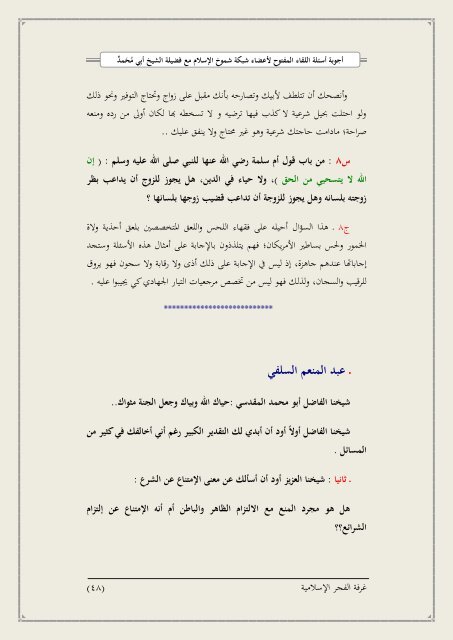 أجوبة أسئلة اللقاء المفتوح لأعضاء شبكة شموخ الإسلام مع فضيلة الشيخ أبي مُحَمدٍ
وأنصحك أن تتلطف لأبيك وتصارحه بأنك مقبل على زواج وتحتاج التوفير ونحو ذلك
ولو احتلت بحيل شرعية لا كذب فيها ترضيه و لا تسخطه بها لكان أولى من رده ومنعه
صراحة؛ مادامت حاجتك شرعية وهو غير محتاج ولا ينفق عليك ..
س٨ : من باب قول أم سلمة رضي الله عنها للنبي صلى الله عليه وسلم : ( إن
الله لا يتسحيي من الحق )، ولا حياء في الدين، هل يجوز للزوج أن يداعب بظر
زوجته بلسانه وهل يجوز للزوجة أن تداعب قضيب زوجها بلسانها ؟
ج٨ . هذا السؤال أحيله على فقهاء اللحس واللعق المتخصصين بلعق أحذية ولاة
الخمور ولحس بساطير الأمريكان؛ فهم يتلذذون بالإجابة على أمثال هذه الأسئلة وستجد
إجاباتها عندهم جاهزة، إذ ليس في الإجابة على ذلك أذى ولا رقابة ولا سجون فهو يروق
للرقيب والسجان، ولذلك فهو ليس من تخصص مرجعيات التيار الجهادي كي يجيبوا عليه .
***************************
. عبد المنعم السلفي
شيخنا الفاضل أبو محمد المقدسي :حياك الله وبياك وجعل الجنة مثواك..
شيخنا الفاضل أولاً أود أن أبدي لك التقدير الكبير رغم أني أخالفك في كثير من
المسائل .
. ثانيا : شيخنا العزيز أود أن أسألك عن معنى الإمتناع عن الشرع :
هل هو مجرد المنع مع الالتزام الظاهر والباطن أم أنه الإمتناع عن إلتزام
الشرائع؟؟
غرفة الفجر الإسلامية (٤٨)